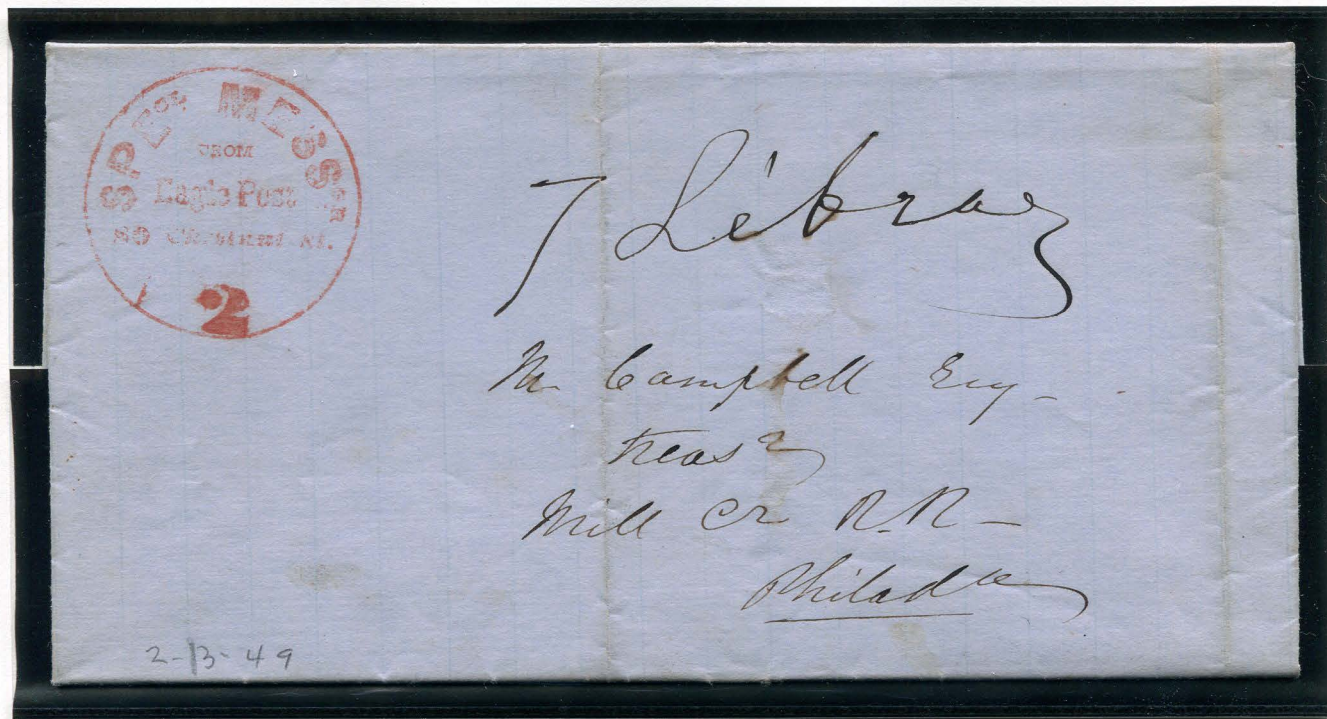 SPECIAL MESSGR
FROM
Eagle Post
80 Chestnut St.
2
7 Library
M. Campbell Esq -
Treasr
Mill Cr R.R -
Philada
2-13-49